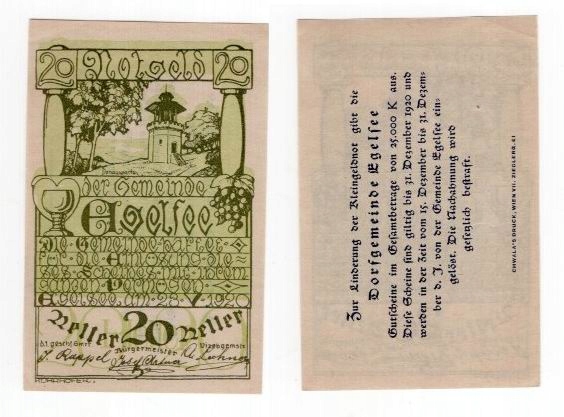 20 Notgeld 20
der Gemeinde
Egelsee
Die Gemeinde haftet
für die Einlösung
des Scheines mit ihrem
ganzen Vermögen
Egelsee am 26. V. 1920
Heller 20 Heller
d. 1. geschf. Gmrt. Bürgermeister Vizebgmstr.
J. Rappel
ROHRHOFER.
Zur Linderung der Kleingeldnot gibt die
Dorfgemeinde Egelsee
Gutscheine im Gesamtbetrage von 25.000 K aus.
Diese Scheine sind giltig bis 31. Dezember 1920 und
werden in der Zeit vom 15. Dezember bis 31. Dezem-
ber d. J. von der Gemeinde Egelsee ein-
gelöst. Die Nachahmung wird
gesetzlich bestraft.
CHWALA'S DRUCK, WIEN VII. ZIEGLERG. 61